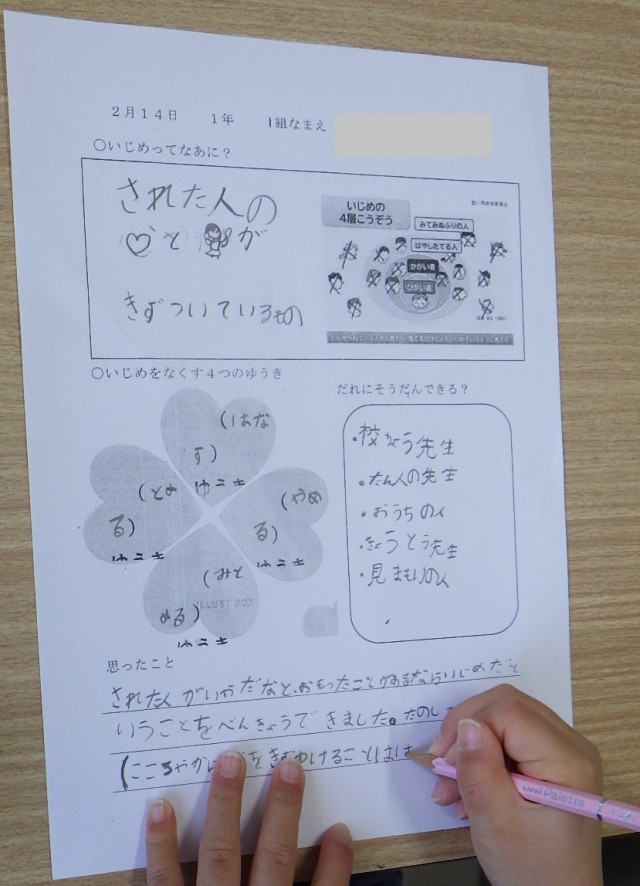 2月14日 1年 1組なまえ
○いじめってなあに?
された人の
心と が
きずついているもの
いじめの
4層こうぞう
みてみぬふりの人
はやしたてる人
かがい者
ひがい者
○いじめをなくす4つのゆうき
(はな
す)
ゆうき
(とめ
る)
ゆうき
(やめ
る)
ゆうき
(みと
める)
ゆうき
ILLUST BOX
だれにそうだんできる?
・校ちょう先生
・たん人の先生
・おうちの人
・きょうとう先生
・見まもりの人
思ったこと
された人がいやだなと、おもったことがあるならいじめだと
いうことをべんきょうできました。たのし
こころやか をきずつけることは
uni Palette